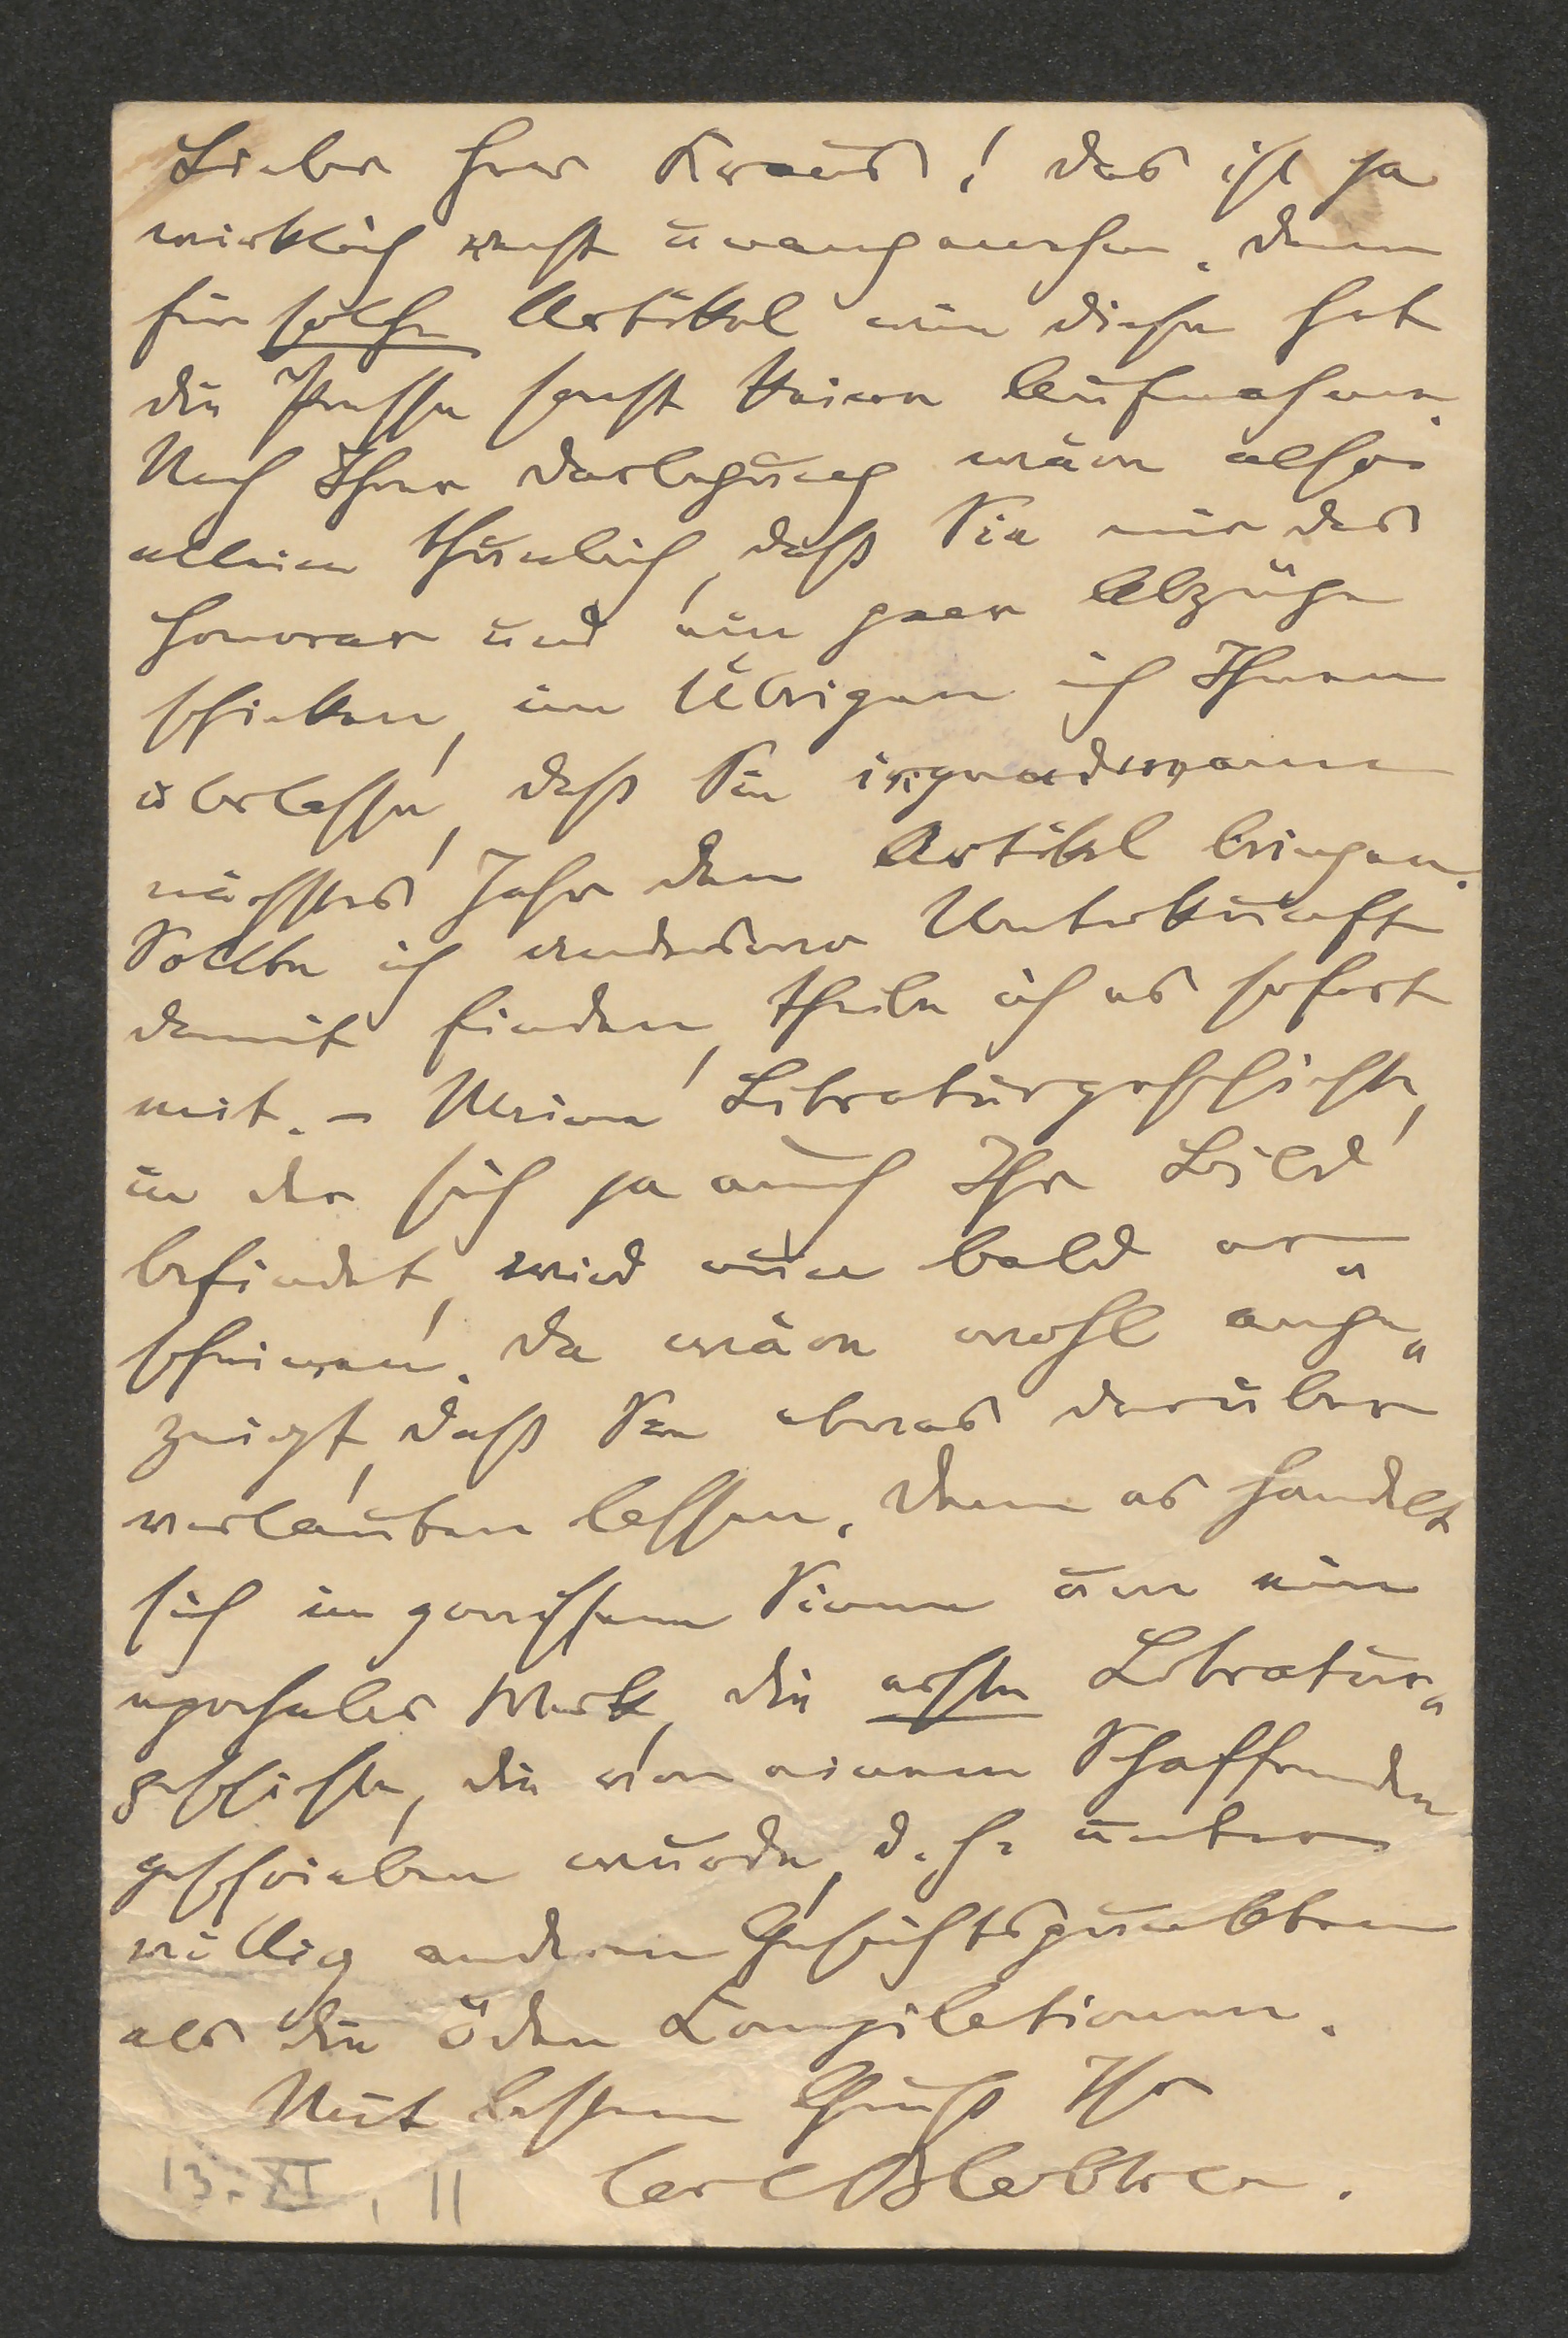 Lieber Herr Kraus! Das ist ja
wirklich recht unangenehm. Denn
für solche Artikel wie diesen hat
die Presse sonst keinen Aufnahme.
Nach Ihrer Darlegung wäre also
allein thunlich, daß Sie mir das
Honorar und ein paar Abzüge
schicken, im Übrigen ich Ihnen
überlasse, daß Sie irgendwann
nächstes Jahr den Artikel bringen.
Sollte ich anderswo Unterkunft
damit finden, theile ich es sofort
mit. – Meine Literaturgeschichte,
in der sich ja auch Ihr Bild
befindet, wird nun bald er„
scheinen. Da wäre wohl ange„
zeigt, daß Sie etwas darüber
verlauten lassen. Denn es handelt
sich in gewissem Sinne um ein
epochales Werk, die erste Literatur„
geschichte, die von einem Schaffenden
geschrieben wurde, d. h. unter
völlig anderen Gesichtspunkten
als die öden Compilationen.
Mit bestem Gruß Ihr
Carl Bleibtreu.
13. XI. 11